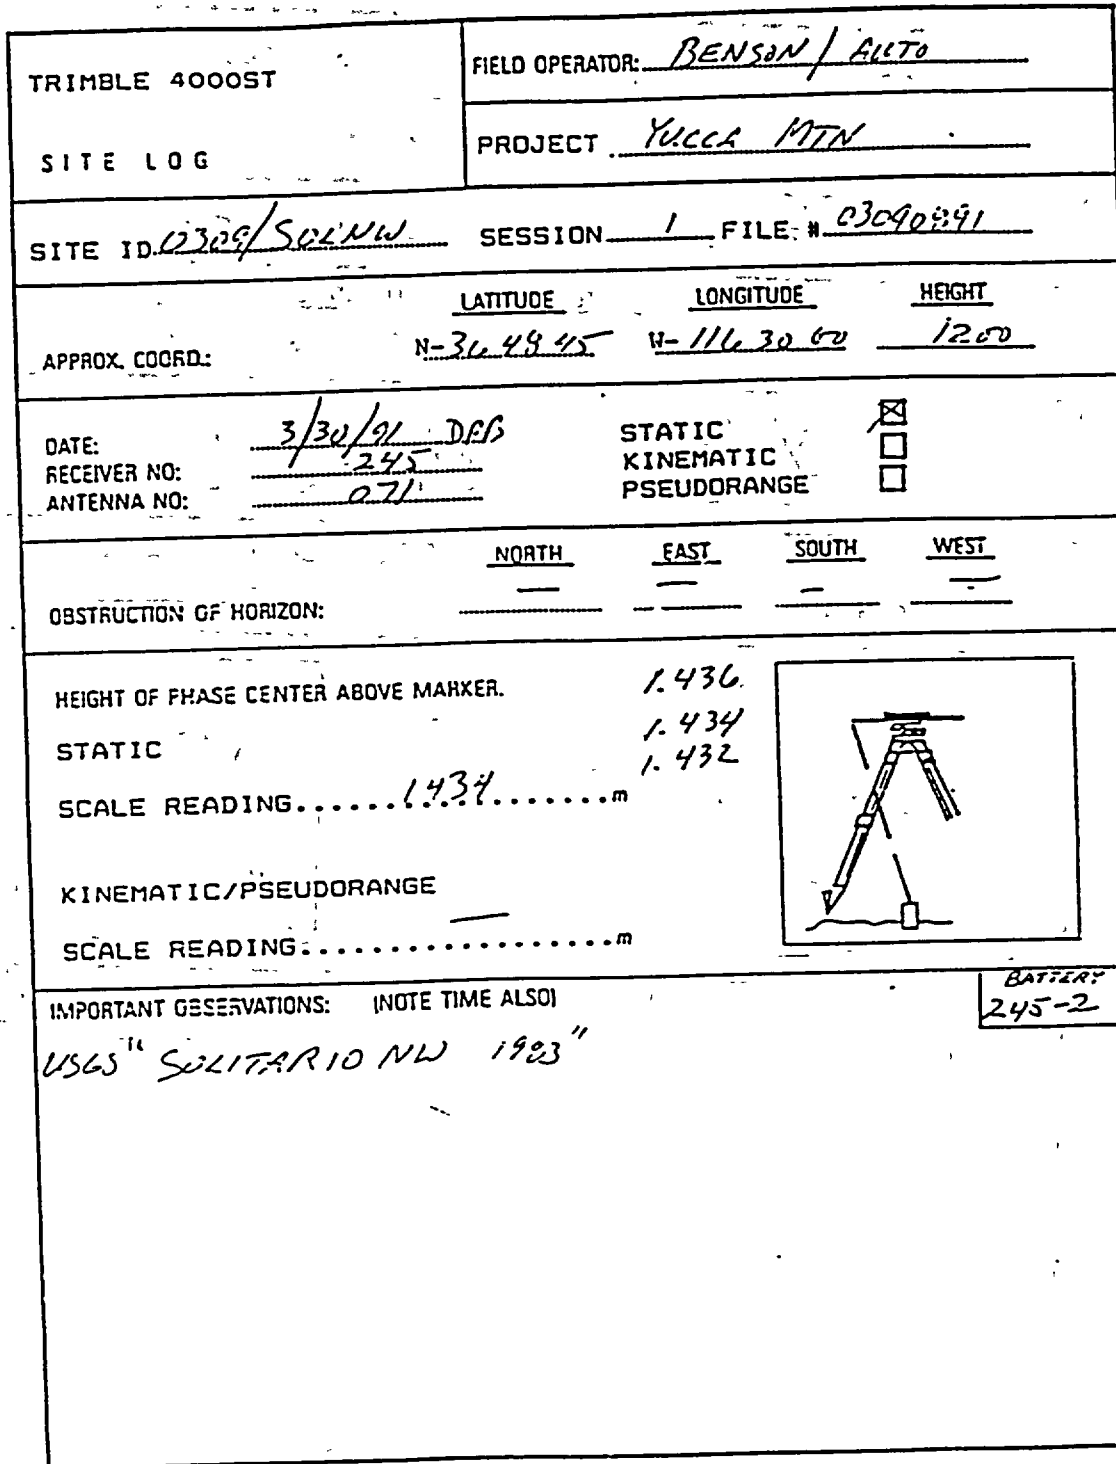 TRIMBLE 4000ST
SITE LOG
FIELD OPERATOR: BENSON / AUTO
PROJECT YUCCA MTN
SITE ID 0309/SOLNW SESSION 1 FILE #
LATITUDE LONGITUDE HEIGHT
APPROX. COORD.: N-36 48 45 W-116 30 00 1200
DATE: 3/30/91 DEB
RECEIVER NO: 245
ANTENNA NO: 071
STATIC
KINEMATIC
PSEUDORANGE
NORTH EAST SOUTH WEST
— — — —
OBSTRUCTION OF HORIZON:
HEIGHT OF PHASE CENTER ABOVE MARKER.
1.436
STATIC
1.434
1.432
SCALE READING......1.434.......m
KINEMATIC/PSEUDORANGE
SCALE READING..................m
BATTERY
245-2
IMPORTANT OBSERVATIONS: (NOTE TIME ALSO)
USGS "SOLITARIO NW 1983"